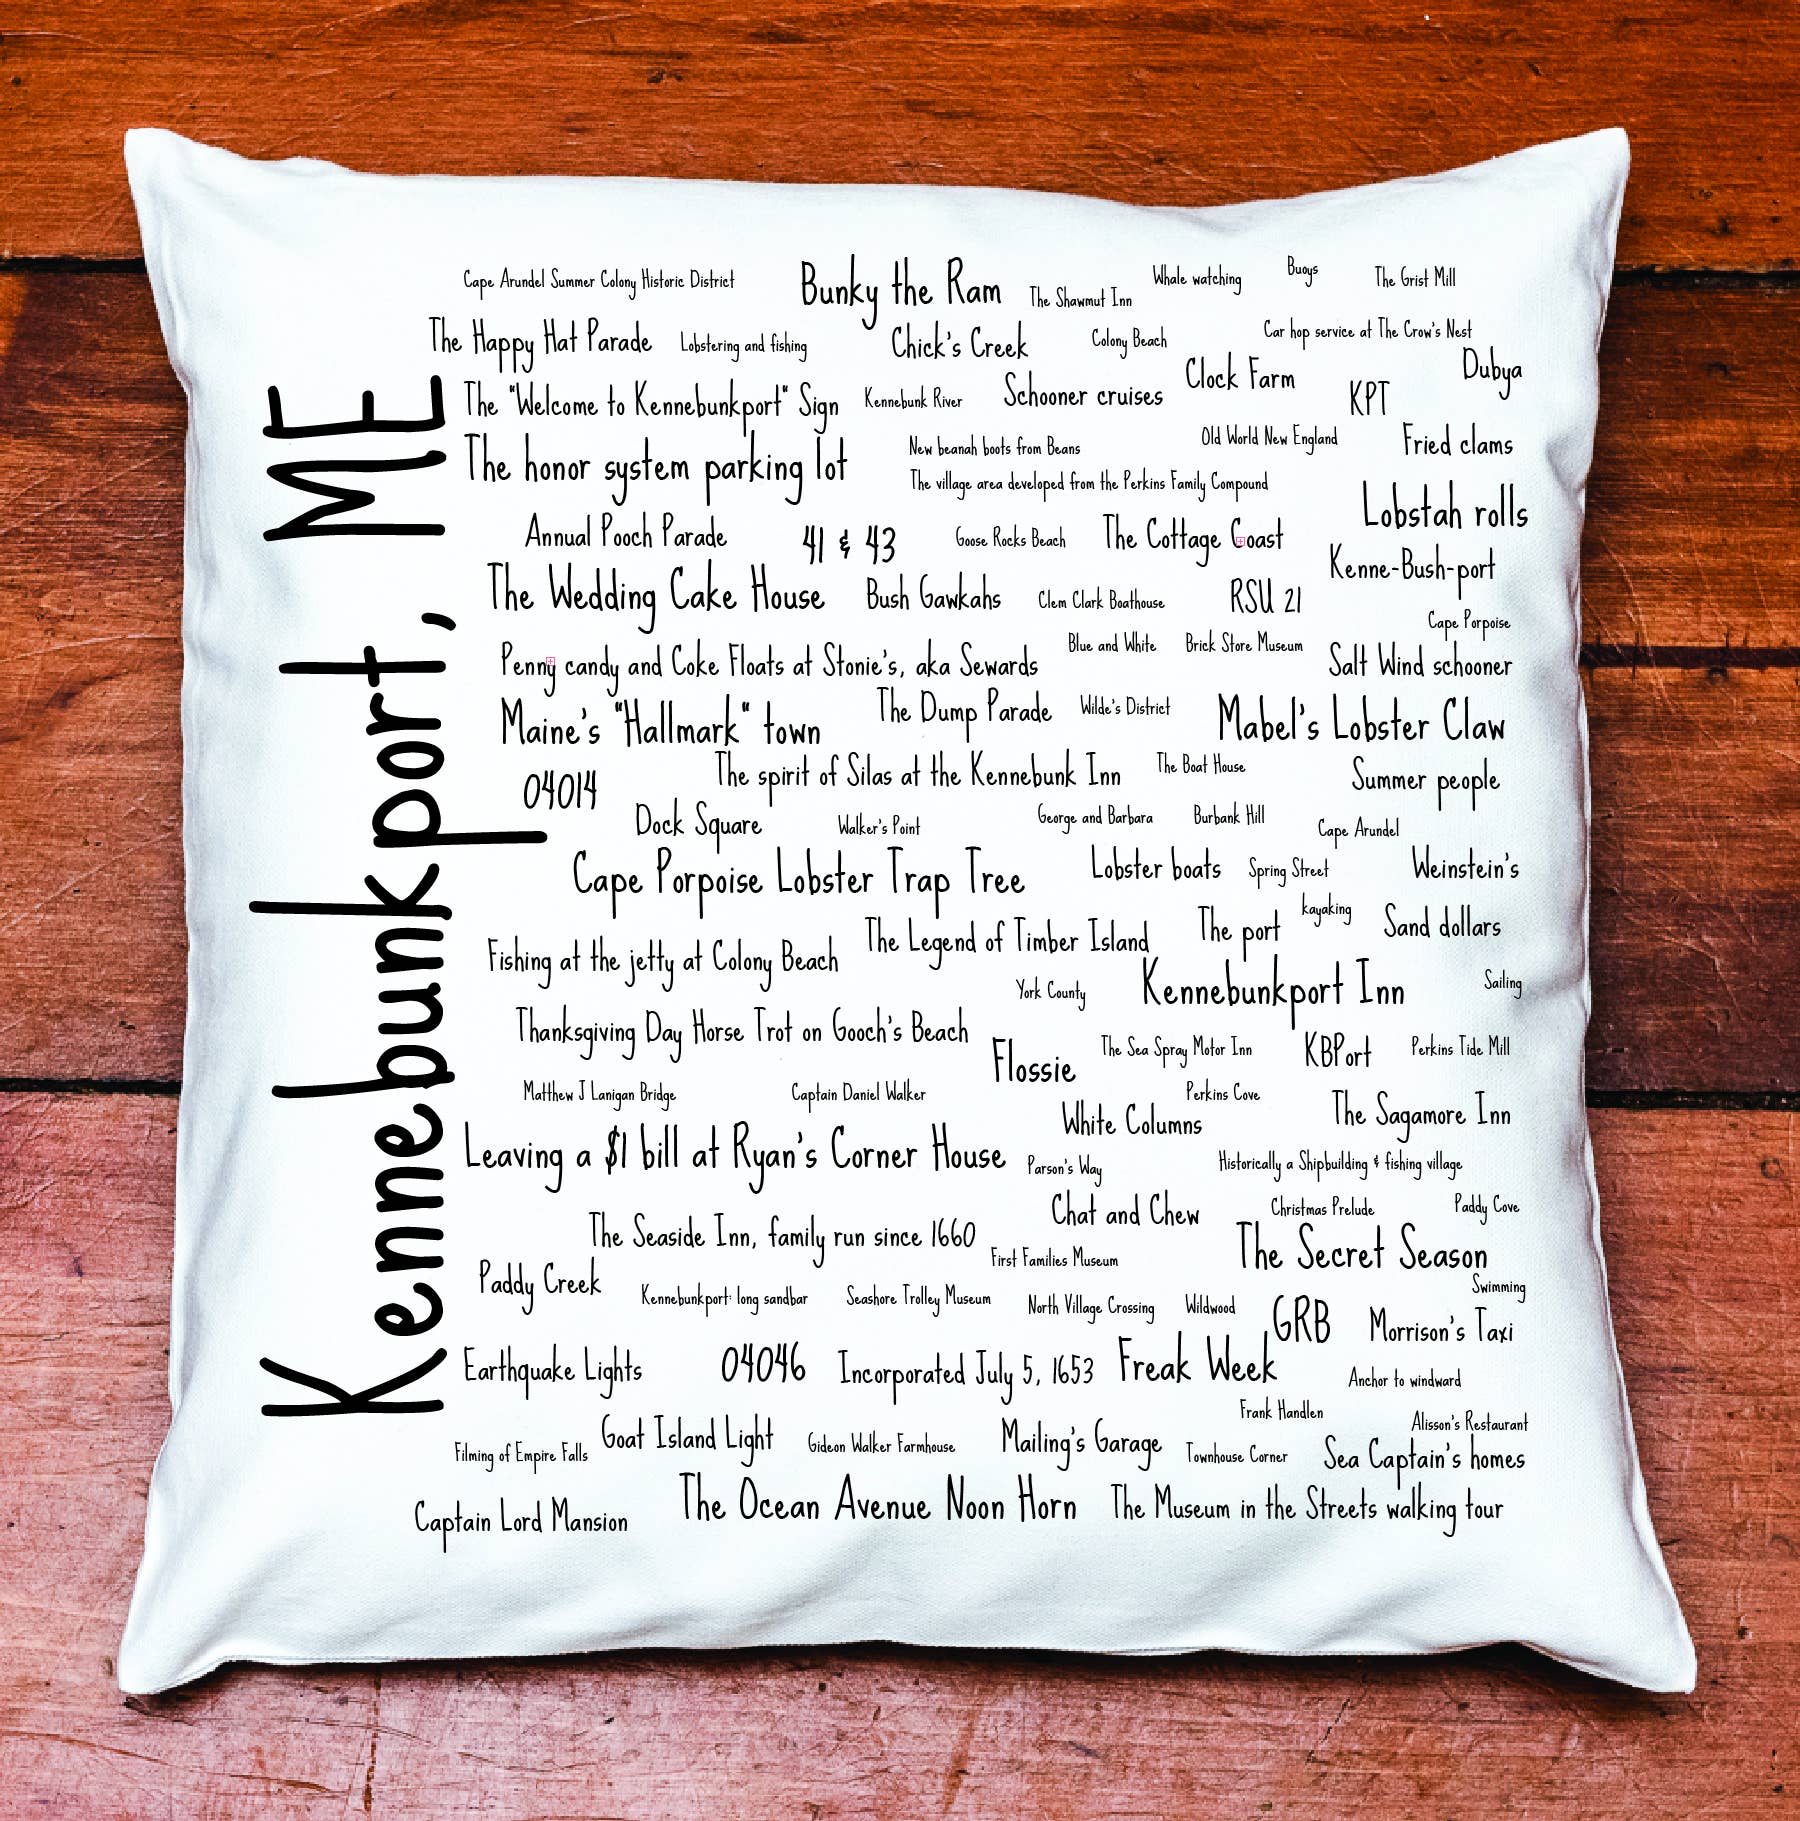 Kennebunkport, ME
Cape Arundel Summer Colony Historic District
Bunky the Ram
The Shawmut Inn
Whale watching
Buoys
The Grist Mill
The Happy Hat Parade
Lobstering and fishing
Chick's Creek
Colony Beach
Car hop service at The Crow's Nest
Clock Farm
Dubya
The "Welcome to Kennebunkport" Sign
Kennebunk River
Schooner cruises
KPT
The honor system parking lot
New beanah boots from Beans
Old World New England
Fried clams
The village area developed from the Perkins Family Compound
Lobstah rolls
Annual Pooch Parade
41 & 43
Goose Rocks Beach
The Cottage Coast
Kenne-Bush-port
The Wedding Cake House
Bush Gawkahs
Clem Clark Boathouse
RSU 21
Cape Porpoise
Penny candy and Coke Floats at Stonie's, aka Sewards
Blue and White
Brick Store Museum
Salt Wind schooner
Maine's "Hallmark" town
The Dump Parade
Wilde's District
Mabel's Lobster Claw
04014
The spirit of Silas at the Kennebunk Inn
The Boat House
Summer people
Dock Square
Walker's Point
George and Barbara
Burbank Hill
Cape Arundel
Cape Porpoise Lobster Trap Tree
Lobster boats
Spring Street
Weinstein's
Fishing at the jetty at Colony Beach
The Legend of Timber Island
The port
kayaking
Sand dollars
York County
Kennebunkport Inn
Sailing
Thanksgiving Day Horse Trot on Gooch's Beach
Flossie
The Sea Spray Motor Inn
KBPort
Perkins Tide Mill
Matthew J Lanigan Bridge
Captain Daniel Walker
Perkins Cove
White Columns
The Sagamore Inn
Leaving a $1 bill at Ryan's Corner House
Parson's Way
Historically a Shipbuilding & fishing village
Chat and Chew
Christmas Prelude
Paddy Cove
The Seaside Inn, family run since 1660
First Families Museum
The Secret Season
Paddy Creek
Kennebunkport: long sandbar
Seashore Trolley Museum
North Village Crossing
Wildwood
Swimming
GRB
Morrison's Taxi
Earthquake Lights
04046
Incorporated July 5, 1653
Freak Week
Anchor to windward
Frank Handlen
Alisson's Restaurant
Filming of Empire Falls
Goat Island Light
Gideon Walker Farmhouse
Mailing's Garage
Townhouse Corner
Sea Captain's homes
Captain Lord Mansion
The Ocean Avenue Noon Horn
The Museum in the Streets walking tour